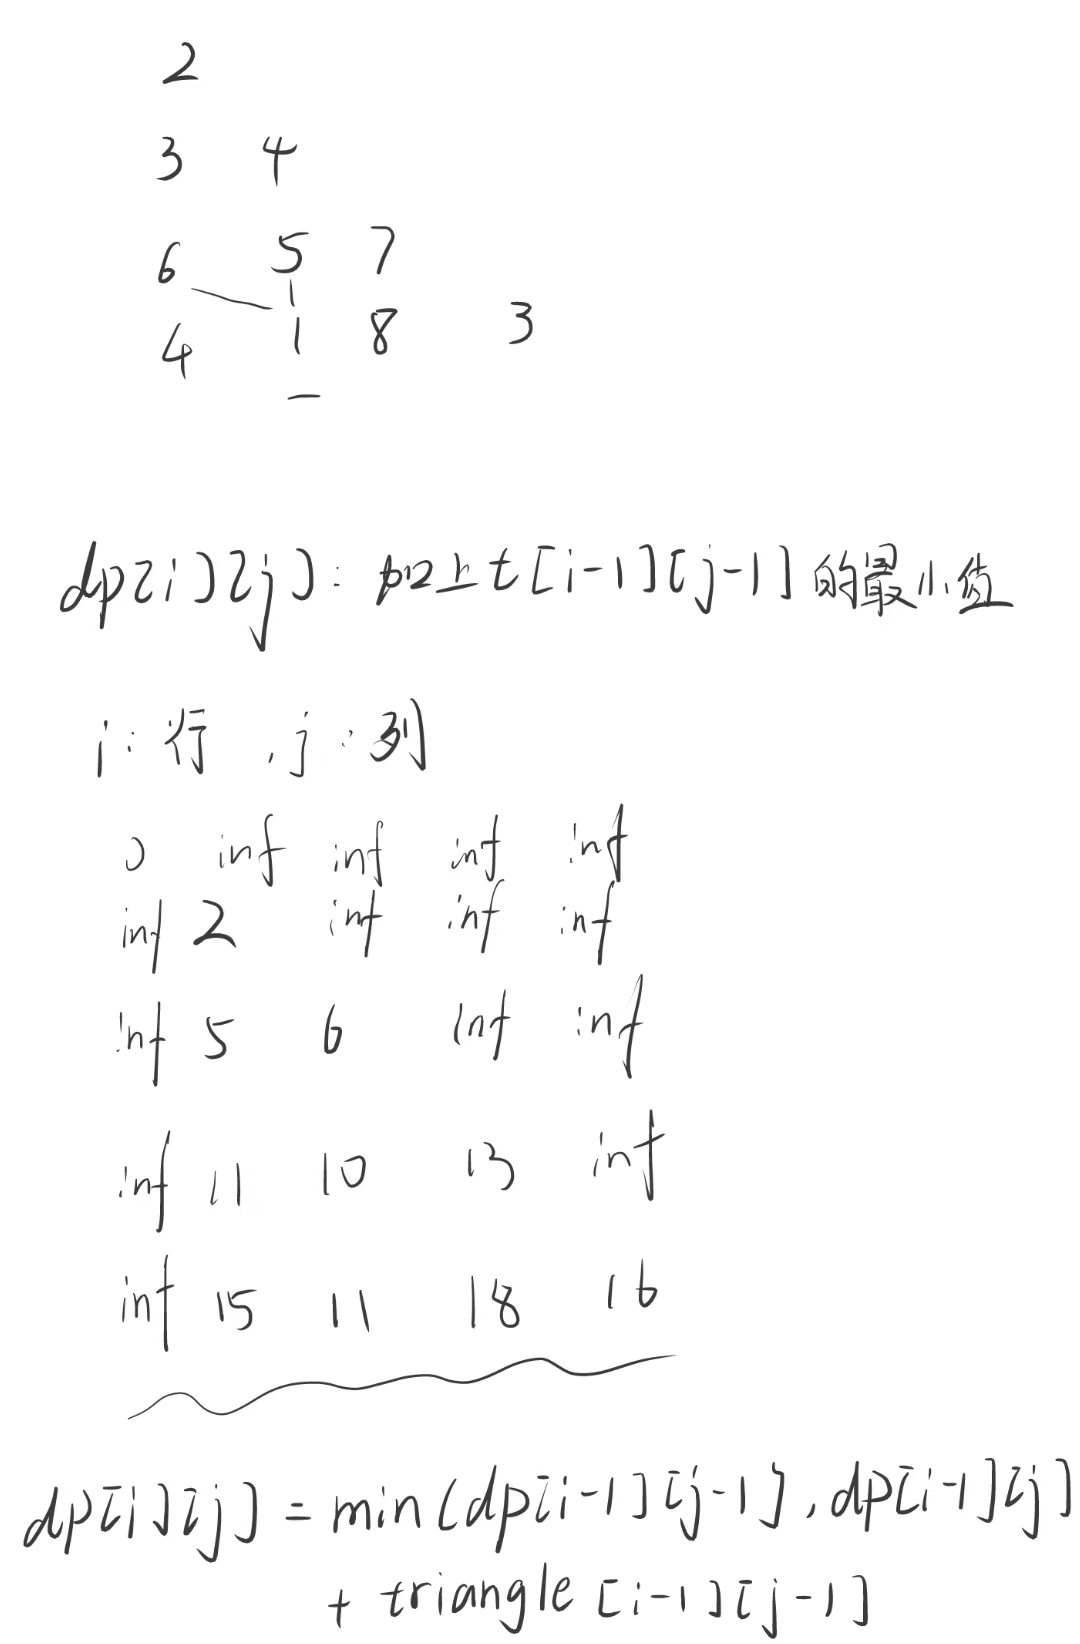 2
3 4
6 5 7
4 1 8 3
dp[i][j]: 加上t[i-1][j-1]的最小值
i:行,j:列
0 inf inf inf inf
inf 2 inf inf inf
inf 5 6 inf inf
inf 11 10 13 inf
inf 15 11 18 16
dp[i][j] = min(dp[i-1][j-1], dp[i-1][j]
+ triangle[i-1][j-1]